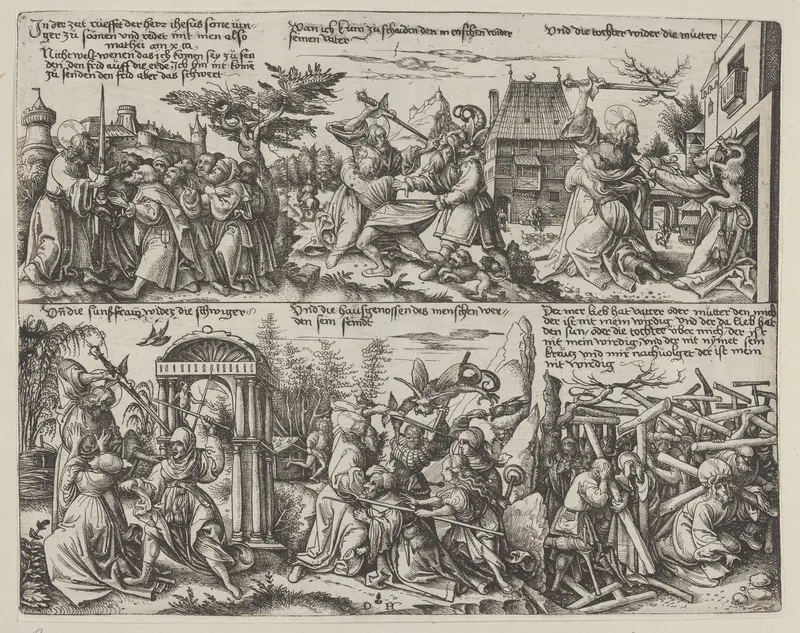 In der zeit rüefft der herr ihesus seine iün-
ger zü samen und redet mit inen also
mathei am x ca.
Nicht welt wenen das ich komen sey zu sen
den den frid auff die erde, Ich bin nit kome
zu senden den frid aber das schwert
Wan ich kum zu schaiden den menschen wider
seinen vater
Und die tochter wider die mütter
Un die sunsfraw wider die schwiger
Und die hausgenossen des menschen wer-
den sein feindt
Der mer lieb hat vatter oder mütter den mich
der ist mein nit wirdig, Und der da lieb hat
den sun oder die tochter uber mich, der ist
nit mein wirdig, Und der nit nymet sein
kreutz und mir nachvolget der ist mein
nit wirdig
D H